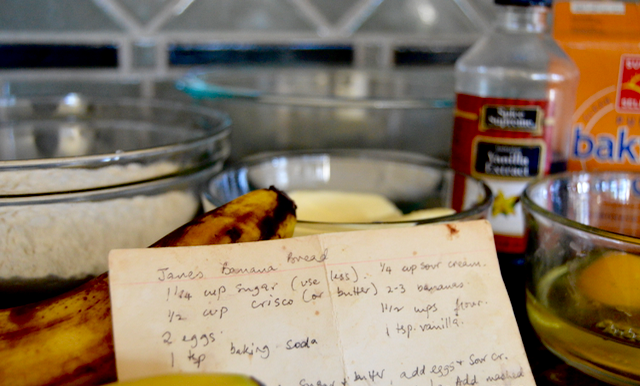 Jane's Banana Bread
1 1/4 cup sugar (use less). 1/4 cup sour cream.
1/2 cup Crisco (or butter) 2-3 bananas
1 1/2 cups flour.
2 eggs
1 tsp. vanilla.
1 tsp baking soda
sugar + butter, add eggs + sour cr.
Add mashed
Spice
Supreme
Vanilla
Extract
bak